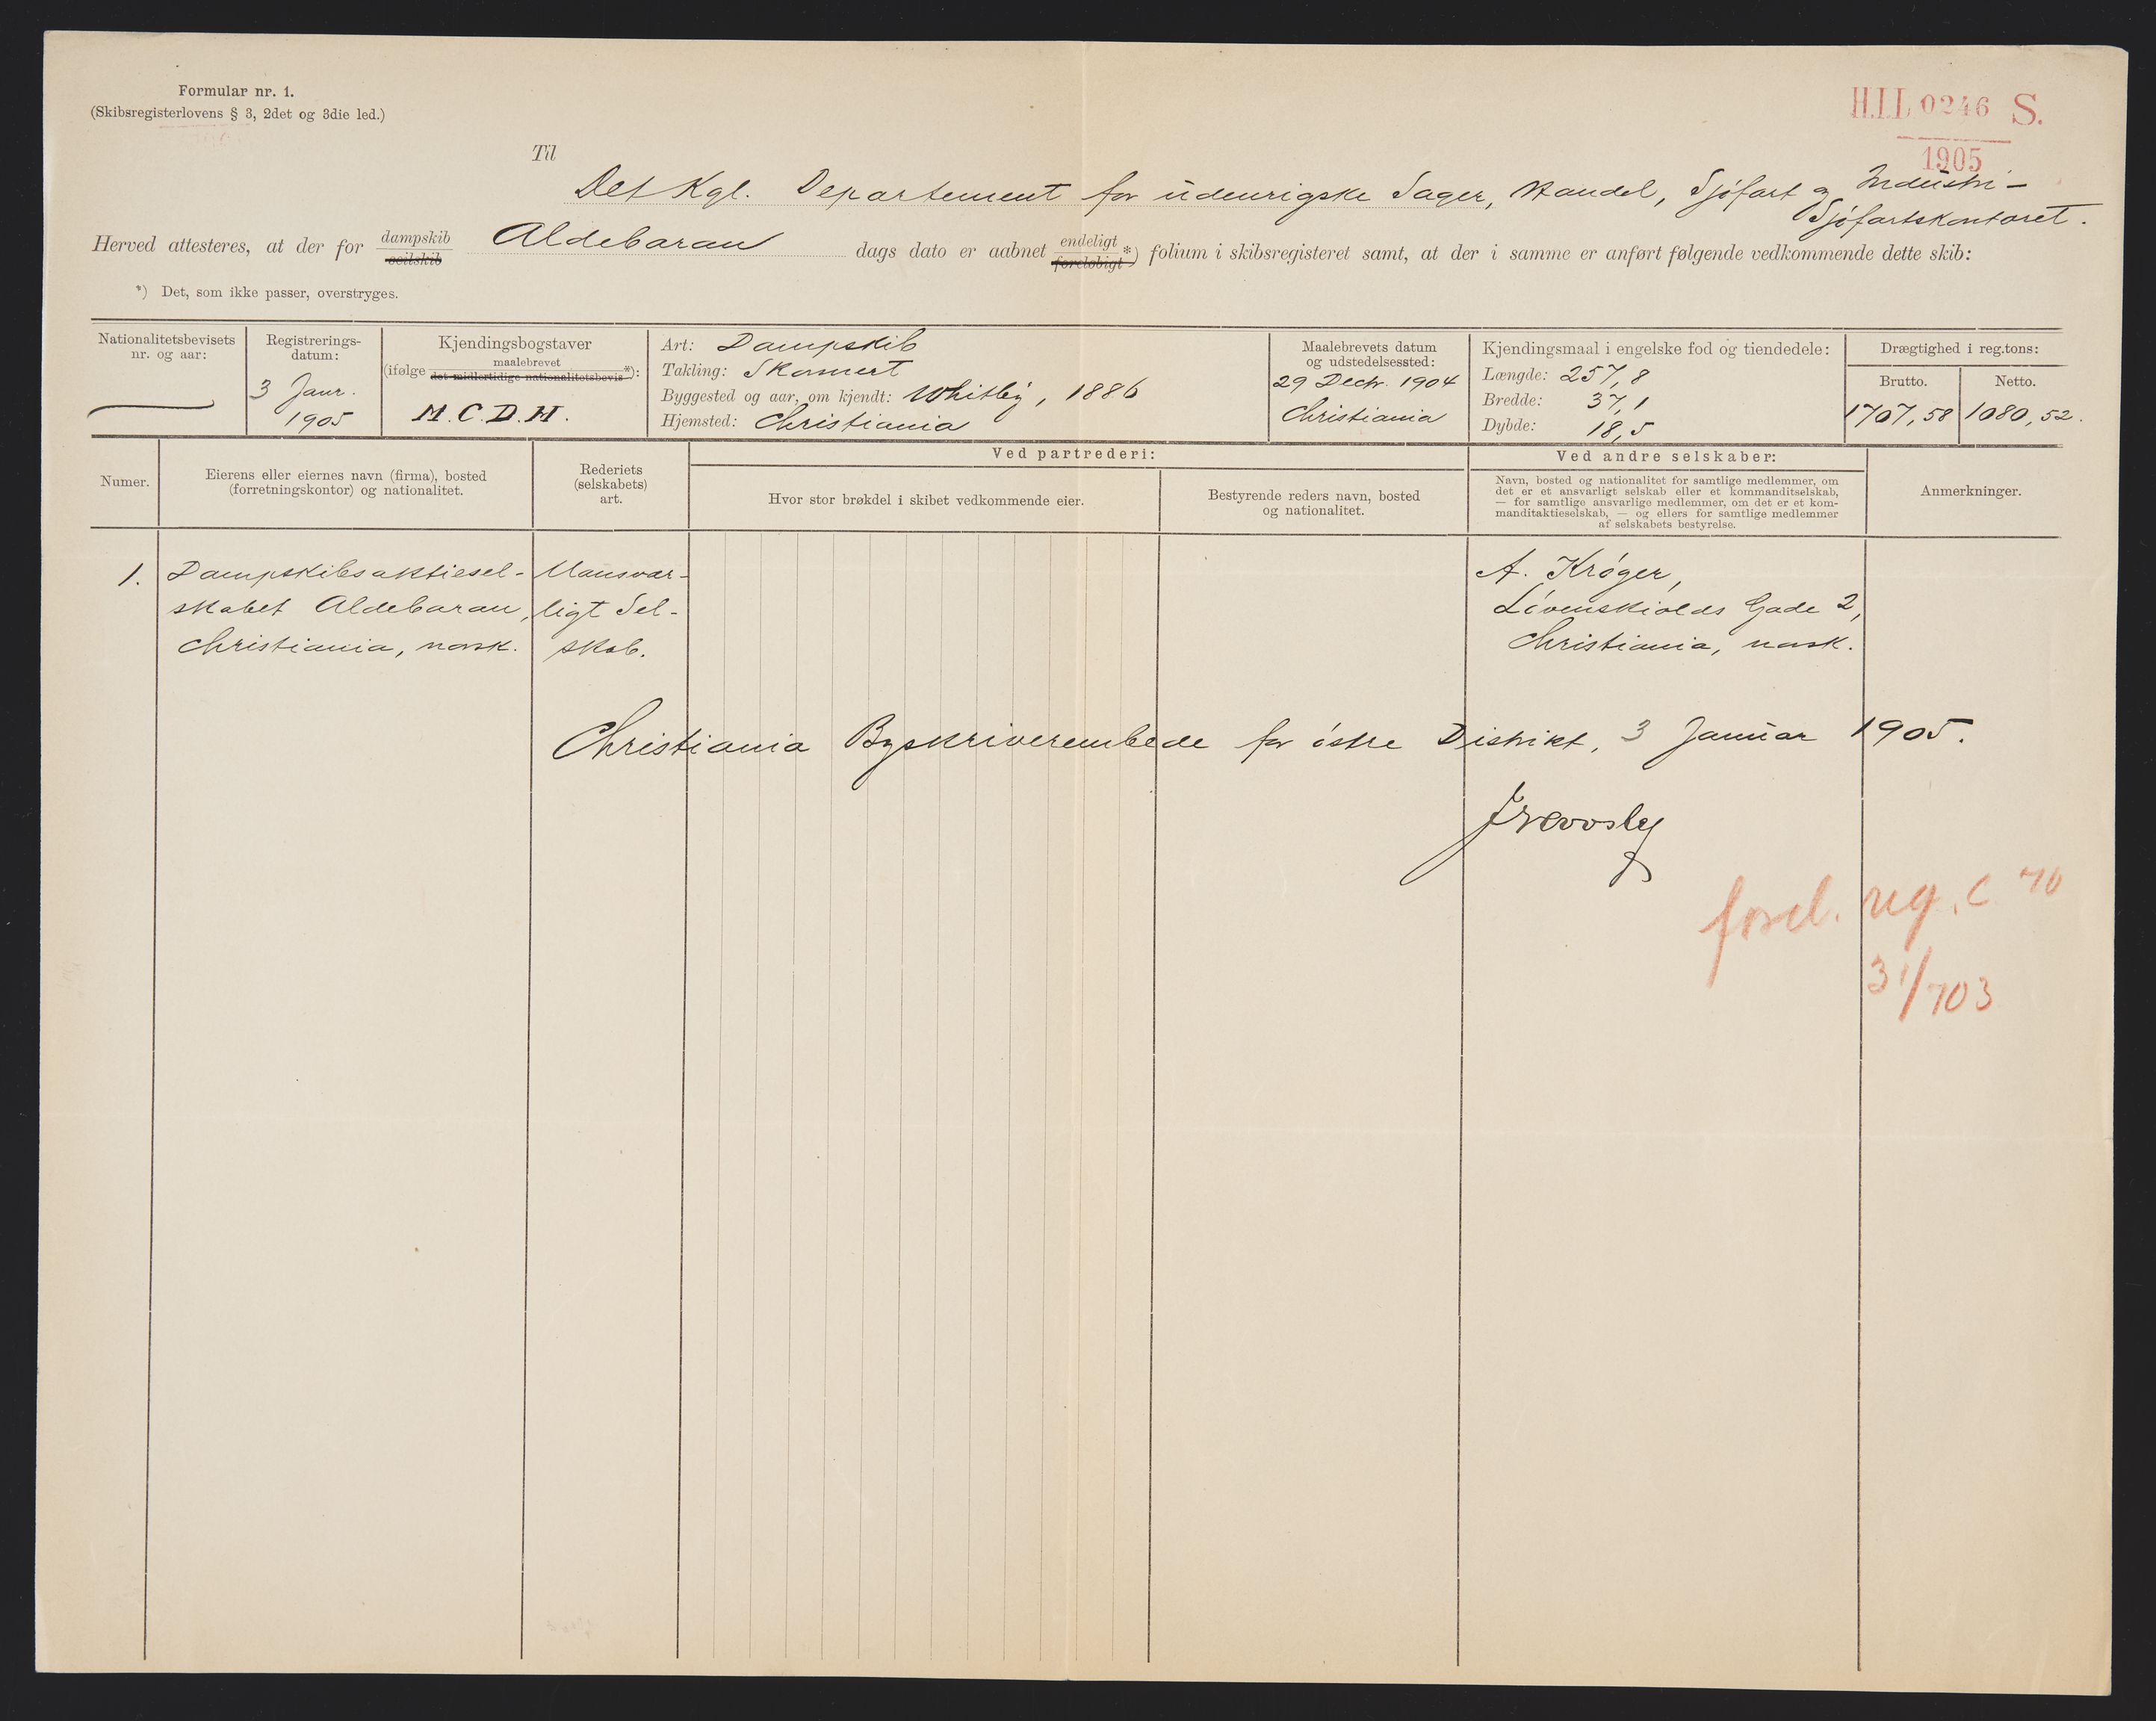 Formular nr. 1.
(Skibsregisterlovens § 3, 2det og 3die led.)
H.I.I. 0246 S.
1905
Til
Det Kgl. Departement for udenrigske Sager, Handel, Sjøfart og Industri –
Sjøfartskontoret.
Herved attesteres, at der for dampskib seilskib Aldebaran dags dato er aabnet endeligt foreløbigt *) folium i skibsregisteret samt, at der i samme er anført følgende vedkommende dette skib:
*) Det, som ikke passer, overstryges.
Nationalitetsbevisets nr. og aar:
Registrerings-datum:
3 Janr. 1905
Kjendingsbogstaver
(ifølge maalebrevet det midlertidige nationalitetsbevis *):
M.C.D.H.
Art: Dampskib
Takling: Skonnert
Byggested og aar, om kjendt: Whitby, 1886
Hjemsted: Christiania
Maalebrevets datum og udstedelsessted:
29 Decbr. 1904
Christiania
Kjendingsmaal i engelske fod og tiendedele:
Længde: 257,8
Bredde: 37,1
Dybde: 18,5
Drægtighed i reg.tons:
Brutto.
1707,58
Netto.
1080,52.
Numer.
Eierens eller eiernes navn (firma), bosted
(forretningskontor) og nationalitet.
Rederiets
(selskabets)
art.
Ved partrederi:
Hvor stor brøkdel i skibet vedkommende eier.
Bestyrende reders navn, bosted
og nationalitet.
Ved andre selskaber:
Navn, bosted og nationalitet for samtlige medlemmer, om
det er et ansvarligt selskab eller et kommanditselskab,
— for samtlige ansvarlige medlemmer, om det er et kom-
manditaktieselskab, — og ellers for samtlige medlemmer
af selskabets bestyrelse.
Anmerkninger.
1.
Dampskibsaktiesel-
skabet Aldebaran,
Christiania, norsk.
Uansvar-
ligt Sel-
skab.
A. Krøger,
Løvenskiolds Gade 2,
Christiania, norsk.
Christiania Byskriverembede for østre Distrikt, 3 Januar 1905.
forel. reg. C 70
31/703